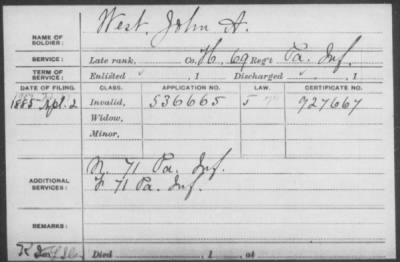 NAME OF SOLDIER: West, John A.
SERVICE: Late rank, Co. H, 69 Reg't Pa. Inf.
TERM OF SERVICE: Enlisted , 1 Discharged , 1
DATE OF FILING. CLASS. APPLICATION NO. LAW. CERTIFICATE NO.
1885 Apl. 2 Invalid, 536665 727667
Widow,
Minor,
ADDITIONAL SERVICES: 71 Pa. Inf.
F 71 Pa. Inf.
REMARKS:
Died , 1 , at